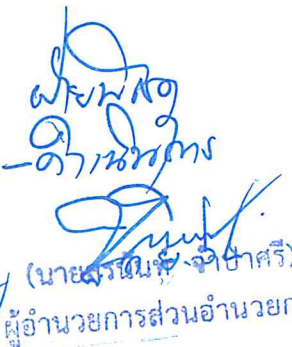 ฝ่ายพัสดุ
-ดำเนินการ
(นาย
ผู้อำนวยการส่วนอำนวยก